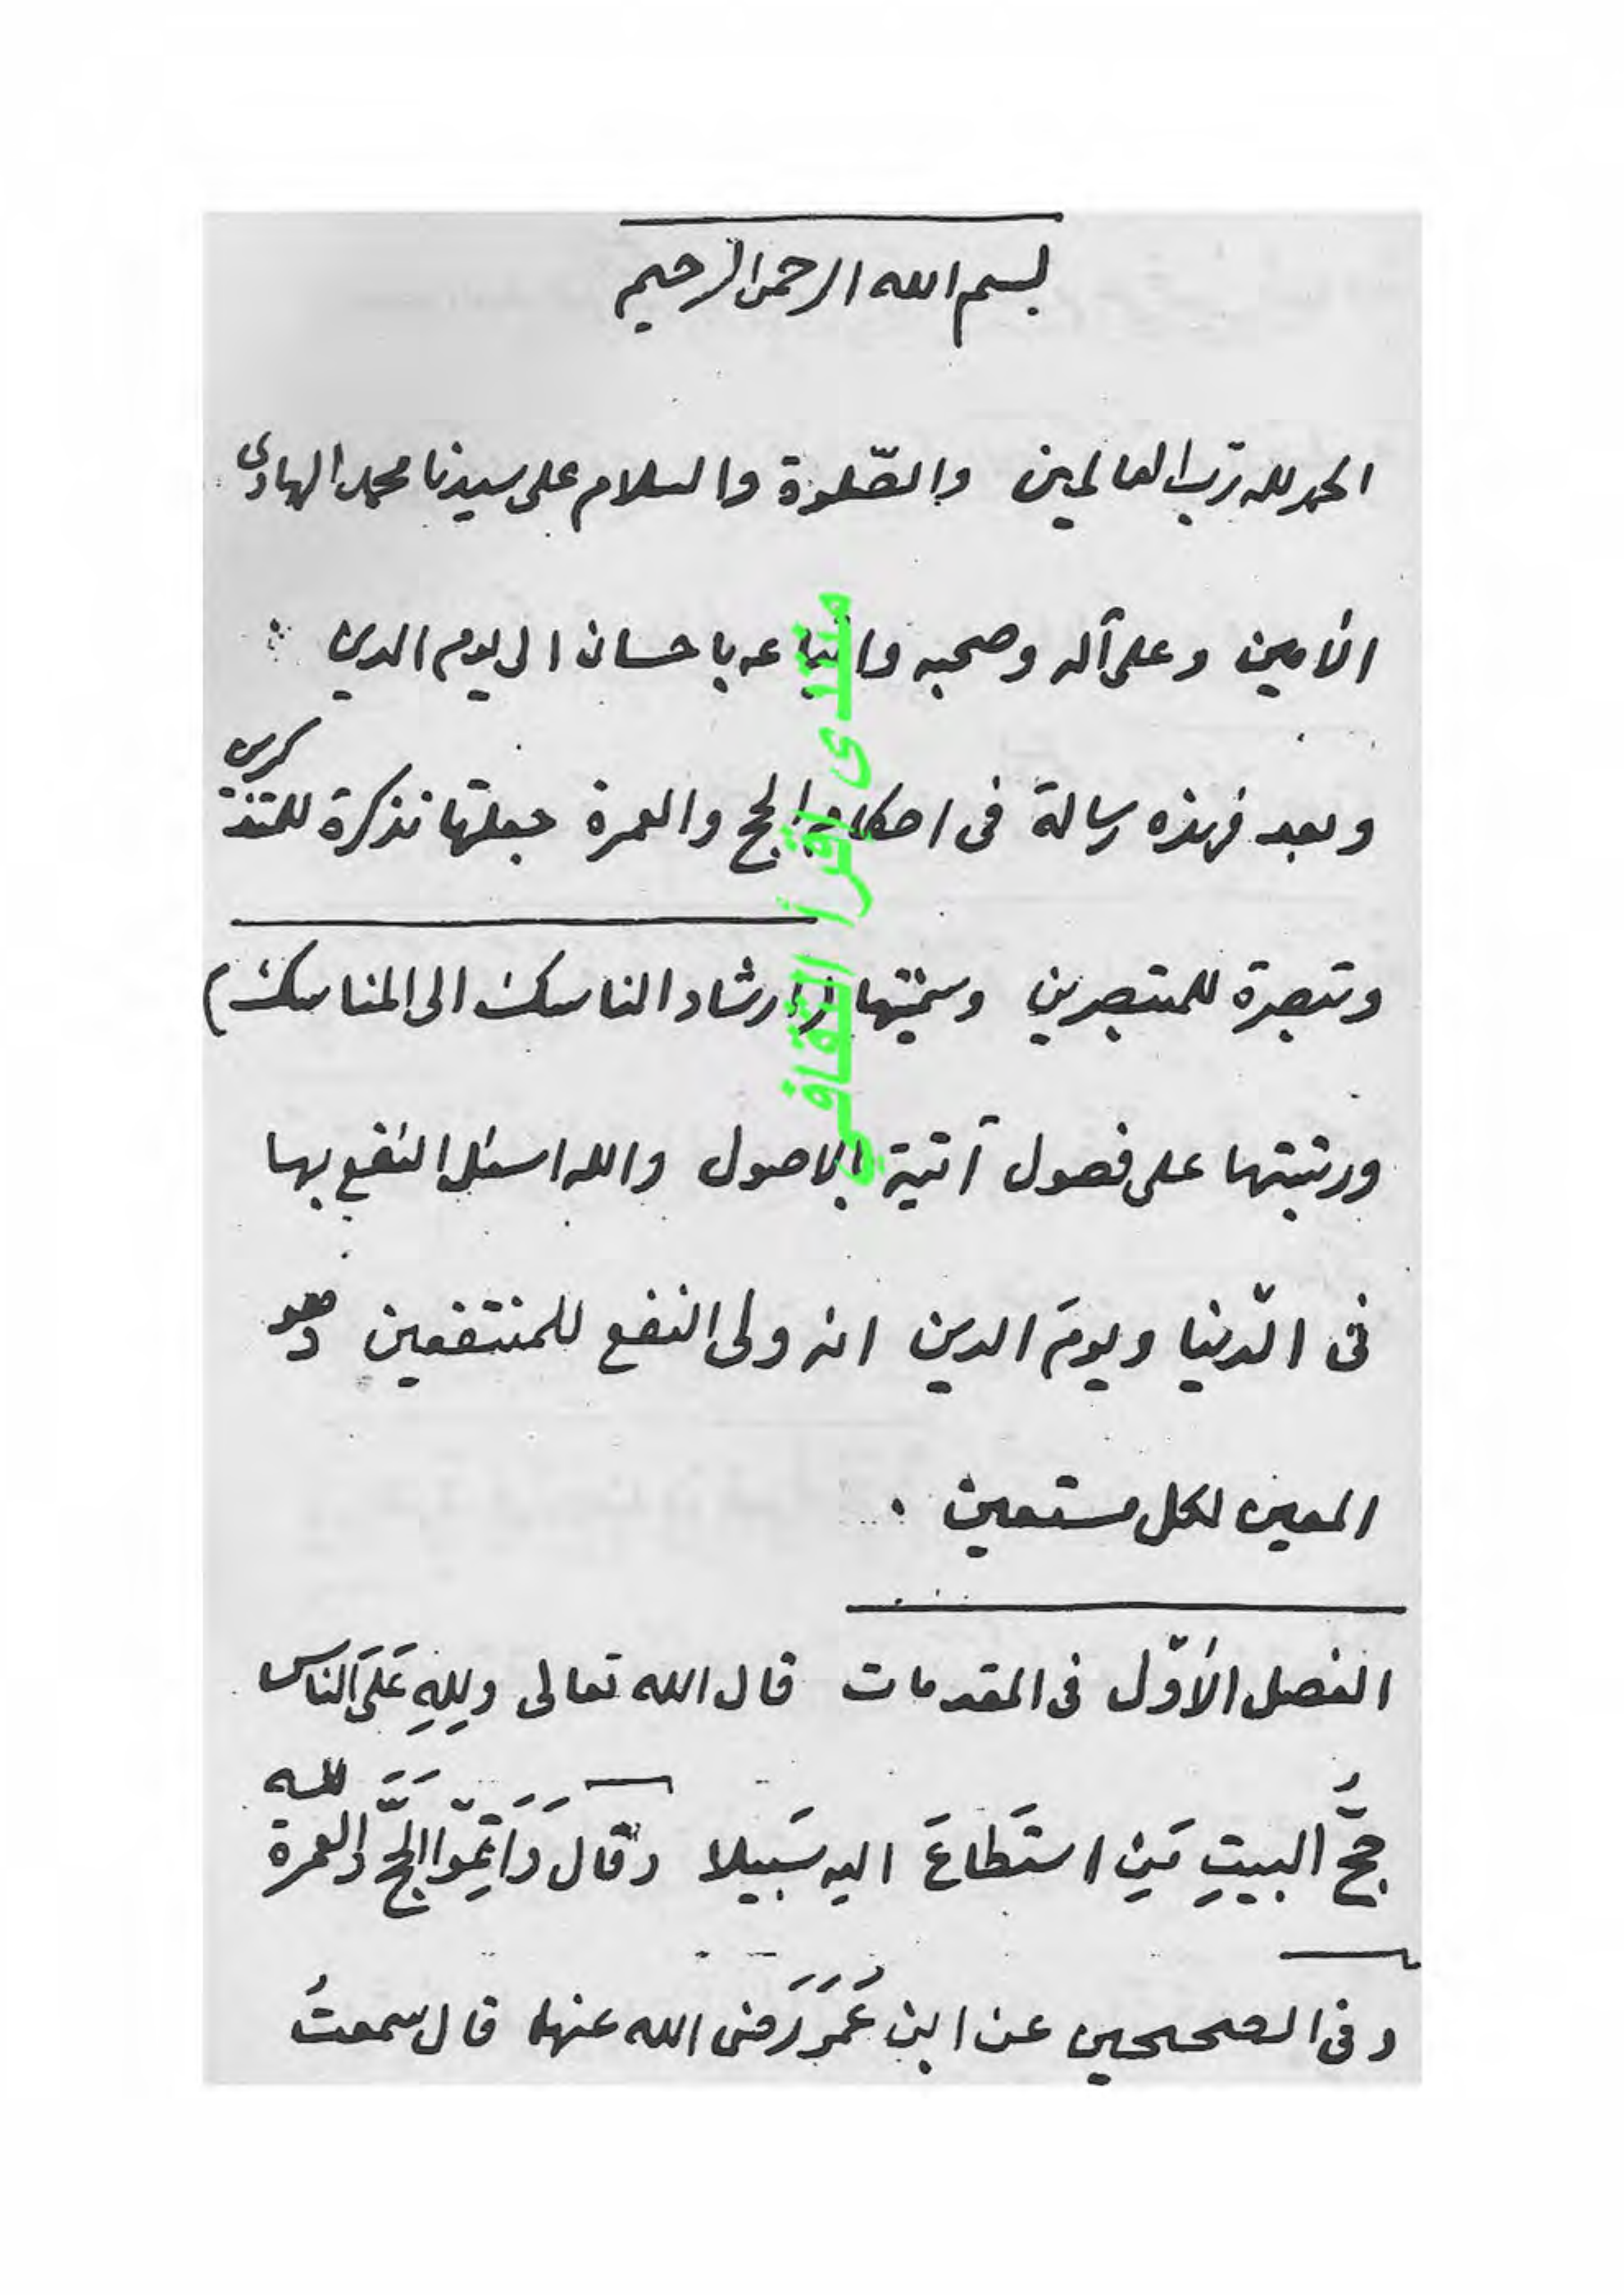 بسم الله الرحمن الرحيم
الحمد لله رب العالمين والصّلوة والسلام على سيدنا محمد الهادى
الأمين وعلى آله وصحبه واتباعه باحسان الى يوم الدين
وبعد فهذه رسالة فى احكام الحج والعمرة جعلتها تذكرة للمتذكرين
وتبصرة للمتبصرين وسمّيتها (إرشاد الناسك الى المناسك)
ورتبتها على فصول آتية بالاصول والله اسئل النفع بها
فى الدّنيا ويومَ الدين انه ولى النفع للمنتفعين وهو
المعين لكل مستعين .
الفصل الأوّل فى المقدمات قال الله تعالى ولِلهِ عَلَى الناس
حِجُّ البيتِ مَنِ استَطاعَ اليه سَبيلا وقال وَاَتِمّوا الحَجَّ والعمرة لله
وفى الصحيحين عن ابن عُمَرَ رَضى الله عنهما قال سمعتُ
منتدى اقرأ الثقافي